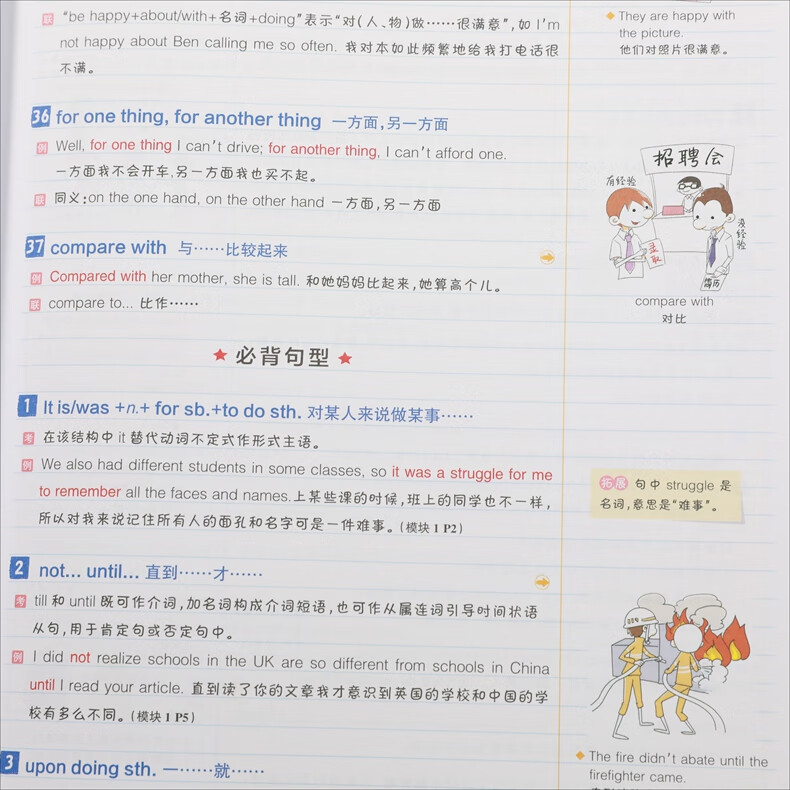 联 “be happy+about/with+名词+doing”表示“对(人、物)做……很满意”,如 I'm
not happy about Ben calling me so often. 我对本如此频繁地给我打电话很
不满。
36 for one thing, for another thing 一方面,另一方面
例 Well, for one thing I can't drive; for another thing, I can't afford one.
一方面我不会开车,另一方面我也买不起。
联 同义:on the one hand, on the other hand 一方面,另一方面
37 compare with 与……比较起来
例 Compared with her mother, she is tall. 和她妈妈比起来,她算高个儿。
联 compare to... 比作……
★ 必背句型 ★
1 It is/was +n.+ for sb.+to do sth. 对某人来说做某事……
考 在该结构中 it 替代动词不定式作形式主语。
例 We also had different students in some classes, so it was a struggle for me
to remember all the faces and names.上某些课的时候,班上的同学也不一样,
所以对我来说记住所有人的面孔和名字可是一件难事。(模块 1 P2)
2 not... until... 直到……才……
考 till 和 until 既可作介词,加名词构成介词短语,也可作从属连词引导时间状语
从句,用于肯定句或否定句中。
例 I did not realize schools in the UK are so different from schools in China
until I read your article. 直到读了你的文章我才意识到英国的学校和中国的学
校有多么不同。(模块 1 P5)
3 upon doing sth. 一……就……
◆ They are happy with
the picture.
他们对照片很满意。
招聘会
有经验
没经验
录取
简历
compare with
对比
拓展 句中 struggle 是
名词,意思是“难事”。
◆ The fire didn't abate until the
firefighter came.